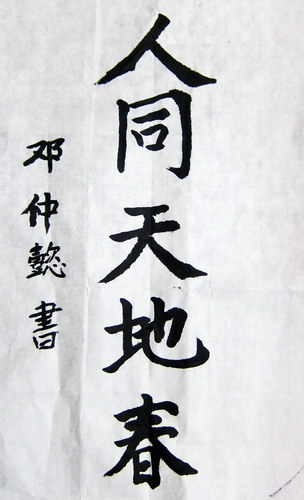 人同天地春
邓仲懿書